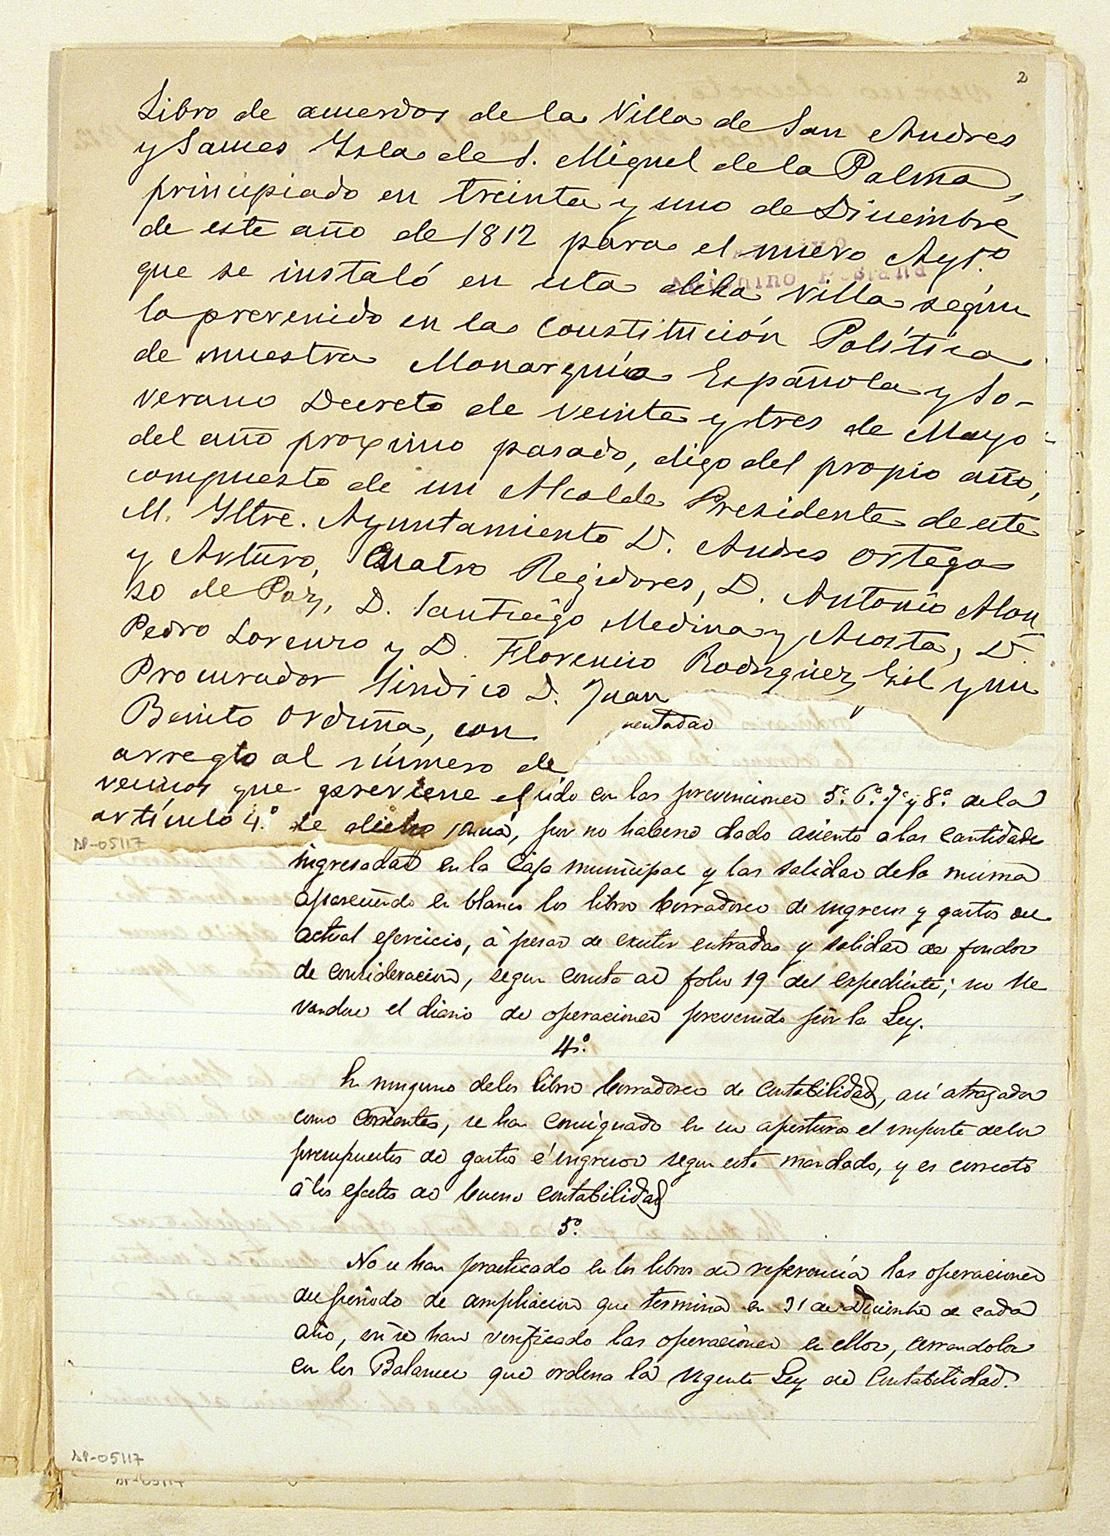 2
Libro de acuerdos de la Villa de San Andres
y Sauces Ysla de S. Miguel de la Palma,
principiado en treinta y uno de Diciembre
de este año de 1812 para el nuevo Aytº
que se instaló en esta dicha Villa según
lo prevenido en la Constitución Política
de nuestra Monarquía Española y So-
verano Decreto de veinte y tres de Mayo
del año proximo pasado, digo del propio año,
compuesto de un Alcalde Presidente de este
M. Yltre. Ayuntamiento D. Andres Ortega
y Arturo, Cuatro Regidores, D. Antonio Alon
so de Paz, D. Santiago Medina y Acosta, D.
Pedro Lorenzo y D. Florencio Rodriguez Gil y un
Procurador Sindico D. Juan
Benito Orduña, con
arreglo al número de
vecinos que previene el
artículo 4.º de dicho
sido en las prevenciones 5ª 6ª 7ª y 8ª de la
por no haberse dado asiento a las cantidades
ingresadas en la Caja municipal y las salidas de la misma
apareciendo en blanco los libros borradores de ingresos y gastos del
actual ejercicio, á pesar de existir entradas y salidas de fondos
de consideracion, segun consta al folio 19 del expediente; no lle
vandose el diario de operaciones prevenido por la Ley.
4º.
En ninguno de los libros borradores de contabilidad, asi atrazados
como corrientes, se ha consignado en su apertura el importe de los
presupuestos de gastos é ingresos segun está mandado, y es correcto
á los efectos de buena contabilidad
5º.
No se han practicado en los libros de referencia las operaciones
del período de ampliacion que termina en 31 de Diciembre de cada
año, ni se han verificado las operaciones en ellos, cerrandolos
con los Balances que ordena la vigente Ley de Contabilidad.
AP-05117
AP-05117